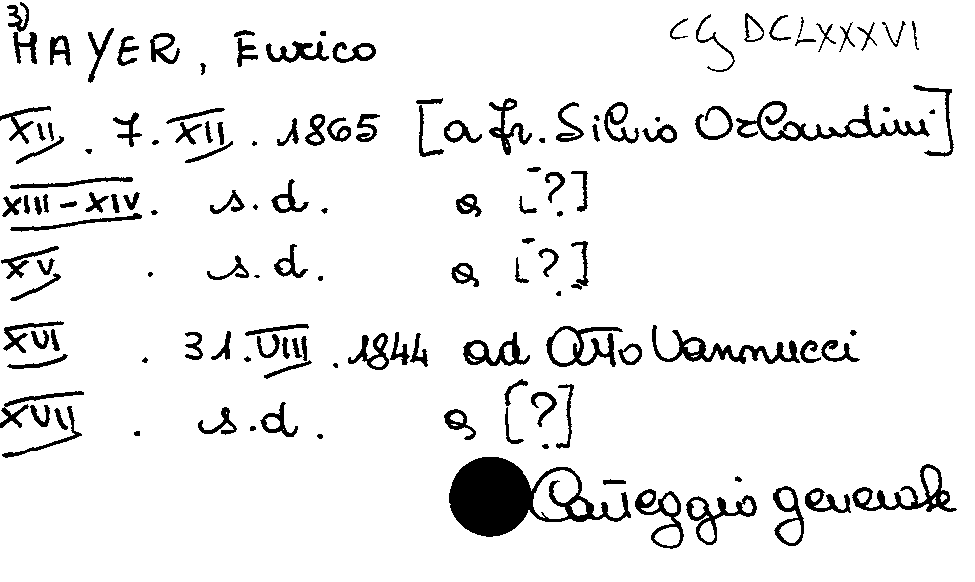 3)
MAYER, Enrico CG DCLXXXVI
XII. 7. XII. 1865 [a fr. Silvio Orlandini]
XIII-XIV. s.d. a [?]
XV. s.d. a [?]
XVI. 31. VIII. 1844 ad Atto Vannucci
XVII. s.d. a [?]
Carteggio generale